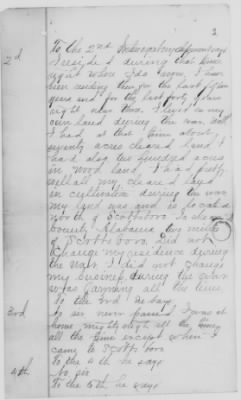 2
2nd
To the 2nd Interrogatory he says
I resided during that time
right where I do now, I have
been residing there for the last fifteen
years and for the last forty years
right near there. I lived on my
own land during the war. Well
I had at that time about
seventy acres cleared land. I
had also two hundred acres
in wood land. I had pretty
well all my cleared land
in cultivation during the war
my land was and is located
north of Scottsboro Jackson
County Alabama two miles
of Scottsboro. Did not
change my residence during
the war. I did not change
my business during the war
was farming all the time
3rd
To the 3rd he says
No sir never passed I was at
home mighty nigh all the time,
all the time except when I
came to Scottsboro
4th
To the 4th he says
No sir
To the 5th he says